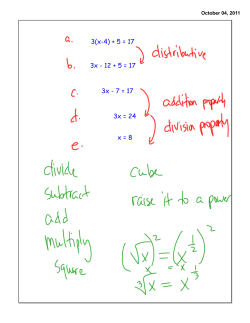 October 04, 2011
a. 3(x-4) + 5 = 17
distributive
b. 3x - 12 + 5 = 17
c. 3x - 7 = 17
addition property
d. 3x = 24
division property
e. x = 8
divide cube
subtract raise it to a power
add
multiply
square
(√x)² = (x^½)²
x = x
∛x = x^⅓